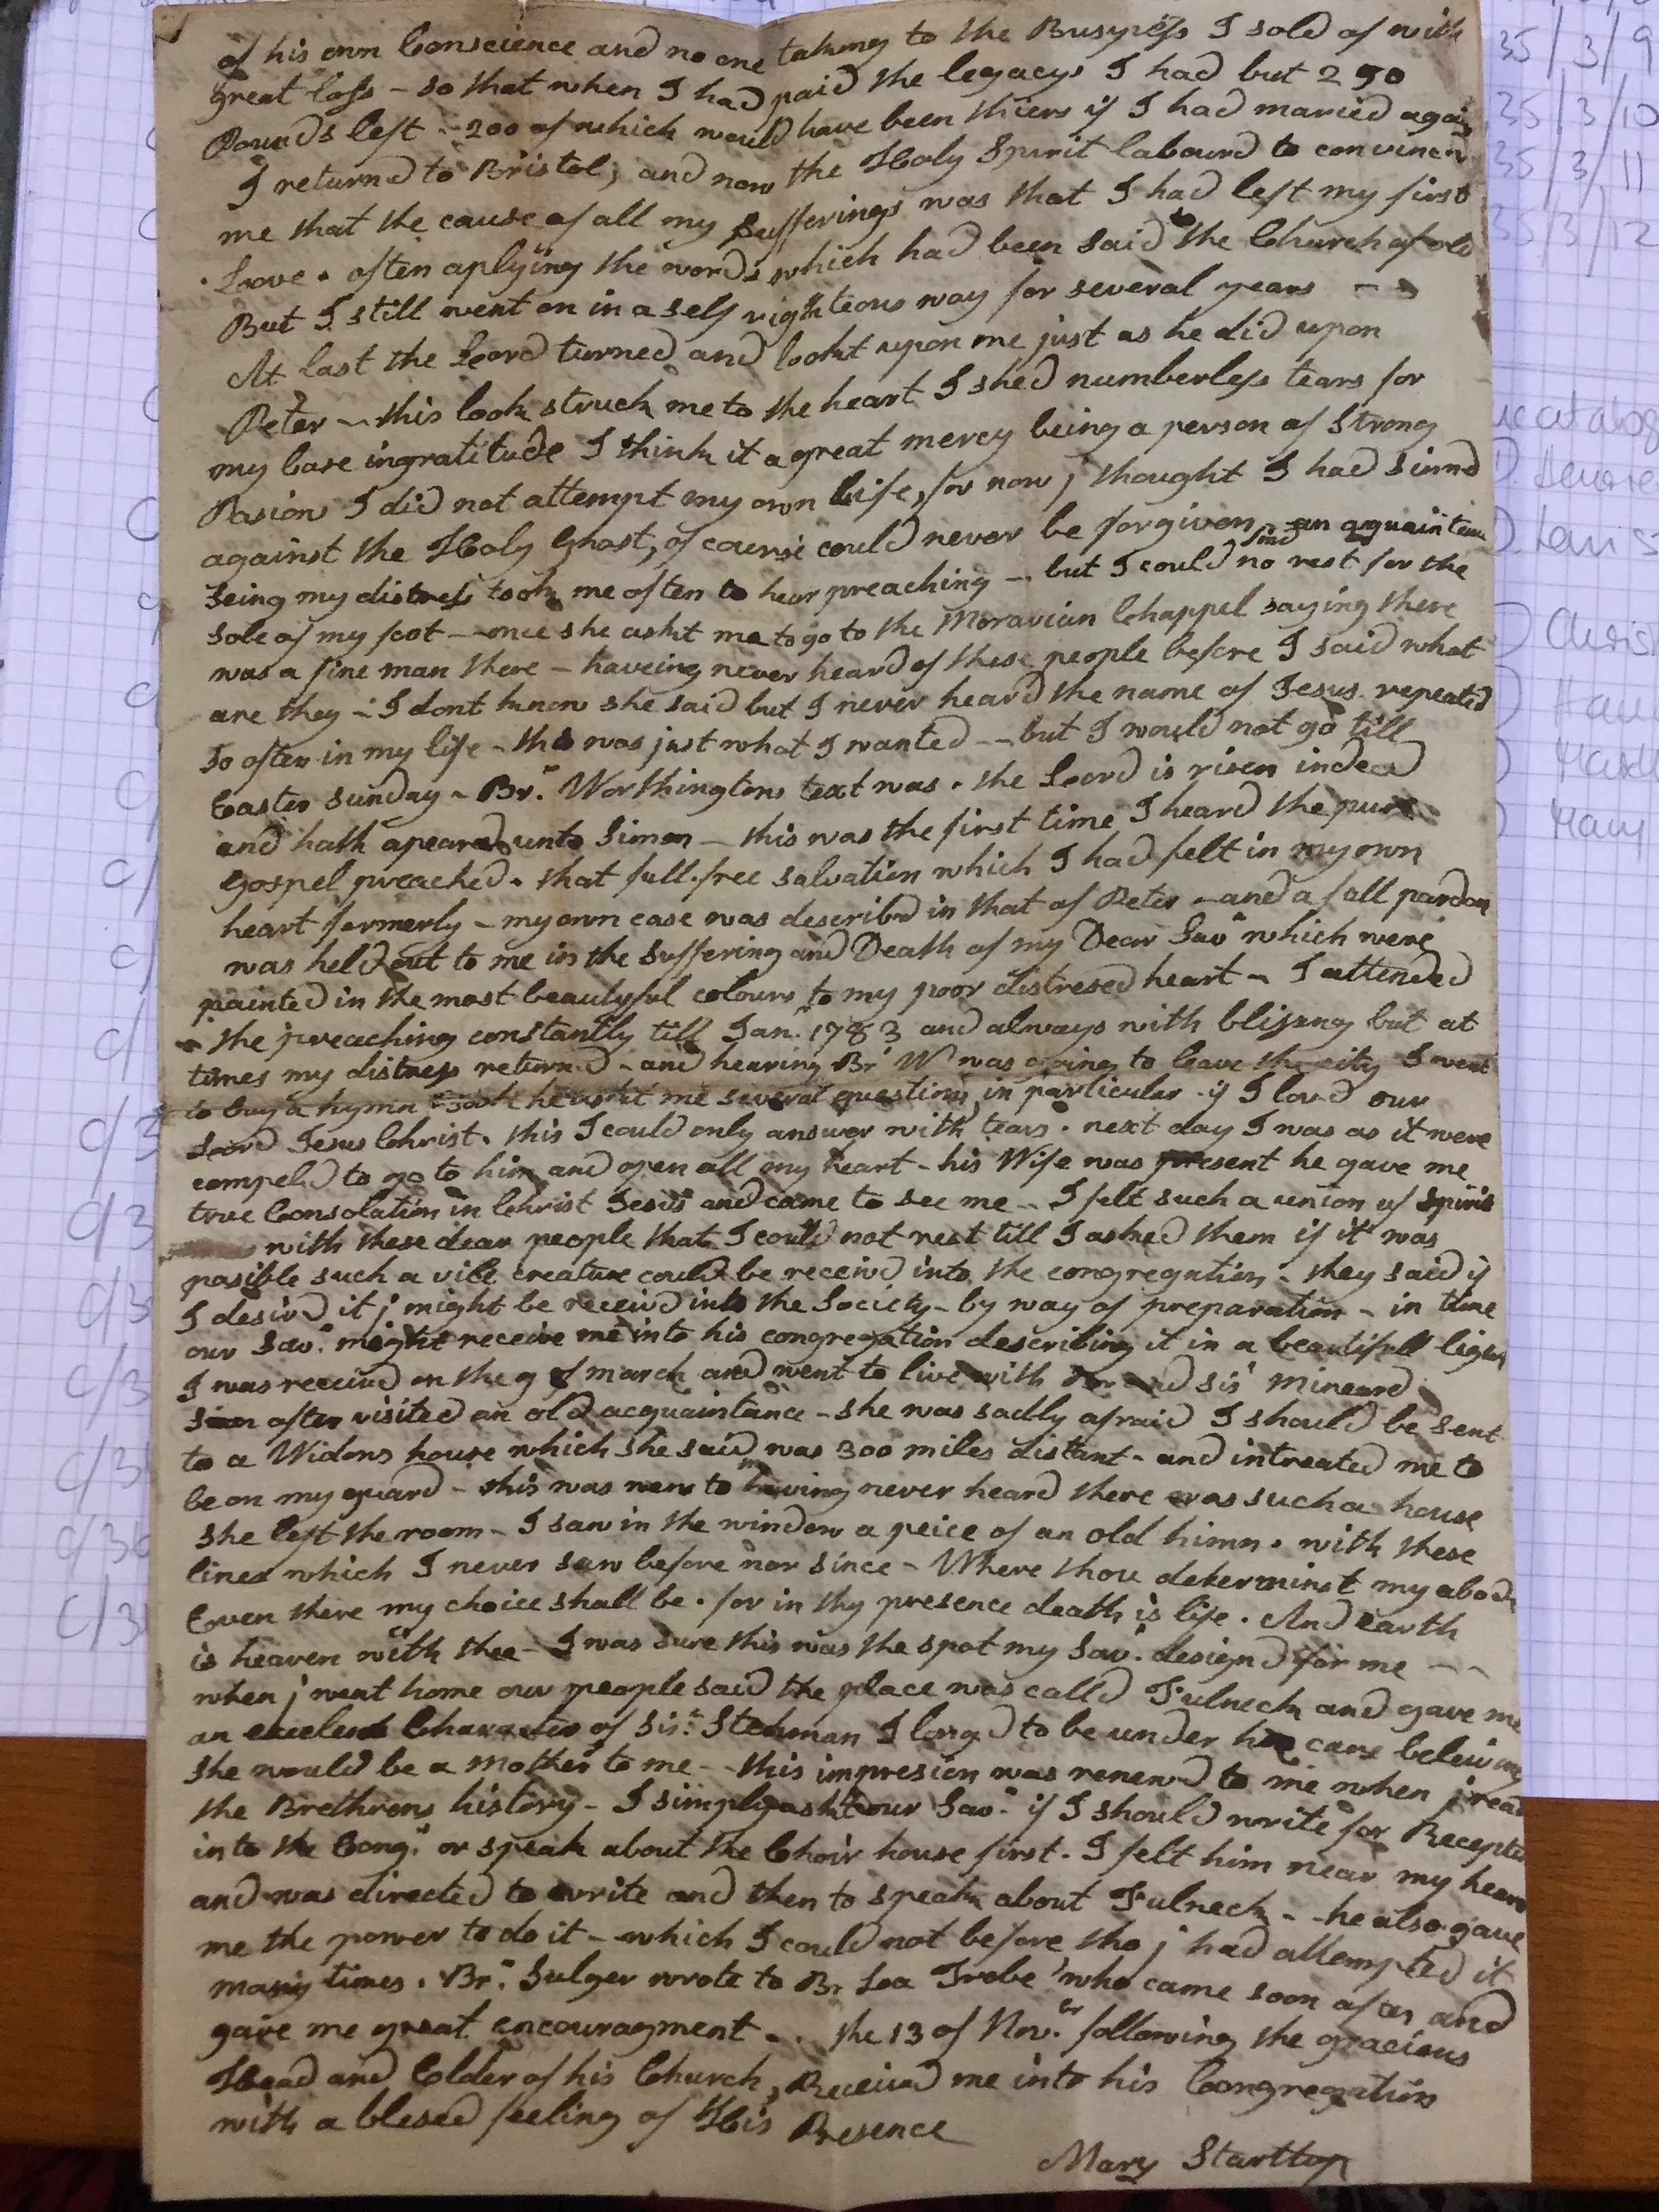 of his own Conscience and no one taking to the Busyness I sold of with
great loss - so that when I had paid the legacys I had but 290
Pounds left - 200 of which would have been thiers if I had maried again
I returnd to Bristol, and now the Holy Spirit labourd to convince
me that the cause of all my Sufferings was that I had left my first
Love . often aplying the words which had been said to the Church of old
But I still went on in a self righteous way for several years - -
At last the Lord turned and lookt upon me just as he did upon
Peter - this look struck me to the heart I shed numberless tears for
my base ingratitude I think it a great mercy being a person of Strong
Pasions I did not attempt my own life, for now j thought I had sinnd
against the Holy Ghost, of course could never be forgiven - an aquaintance
seing my distress took me often to hear preaching - but I could find no rest for the
sole of my foot - once she askt me to go to the Moravian Chappel saying there
was a fine man there - haveing never heard of these people before I said what
are they - I dont know she said but I never heard the name of Jesus repeated
so often in my life - this was just what I wanted - - but I would not go till
Easter sunday - Br. Worthingtons text was . the Lord is risen indeed
and hath apeared unto Simon - this was the first time I heard the pure
Gospel preached . that full free salvation which I had felt in my own
heart formerly - my own case was describd in that of Peter - and a full pardon
was held out to me in the suffering and Death of my Dear Savr which were
painted in the most beautyful colours to my poor distresed heart - I attended
the preaching constantly till Jan. 1783 and always with blissing but at
times my distress returnd - and hearing Br W was going to leave the city I went
to buy a hymn Book he askt me several questions in particular . if I lovd our
Lord Jesus Christ . this I could only answer with tears . next day I was as it were
compeld to go to him and open all my heart - his Wife was present he gave me
true Consolation in Christ Jesus and came to see me - I felt such a union of spirit
with these dear people that I could not rest till I asked them if it was
posible such a vile creature could be receivd into the congregation - they said if
I desird it j might be receivd into the Society - by way of preparation - in time
our Savr might receive me into his congregation describing it in a beautifull light
I was receivd on the 9 of march and went to live with Br and sisr Mineard
soon after visited an old acquaintance - she was sadly afraid I should be sent
to a Widows house which she said was 300 miles distant - and intreated me to
be on my guard - this was new to me having never heard there was such a house
she left the room - I saw in the window a peice of an old himn . with these
lines which I never saw before nor since - Where thou determinst my abode
Even there my choice shall be . for in thy presence death is life . And earth
is heaven with thee - I was sure this was the spot my Savr designd for me - -
when j went home our people said the place was calld Fulneck and gave me
an excelent Character of Sisr Stehman I longd to be under her care beleiving
she would be a Mother to me - - this impresion was renewd to me when j read
the Brethrens history - I simply askt our Savr if I should write for Reception
into the Congn or speak about the Choir house first . I felt him near my heart
and was directed to write and then to speak about Fulneck - - he also gave
me the power to do it - which I could not before tho j had attempted it
many times . Br. Sulger wrote to Br Laa Trobe who came soon after and
gave me great encouragment - . the 13 of Novbr following the gracious
Head and Elder of his Church, Receivd me into his Congregation
with a blesed feeling of His Presence
Mary Starttop
35/3/9
35/3/10
35/3/11
35/3/12